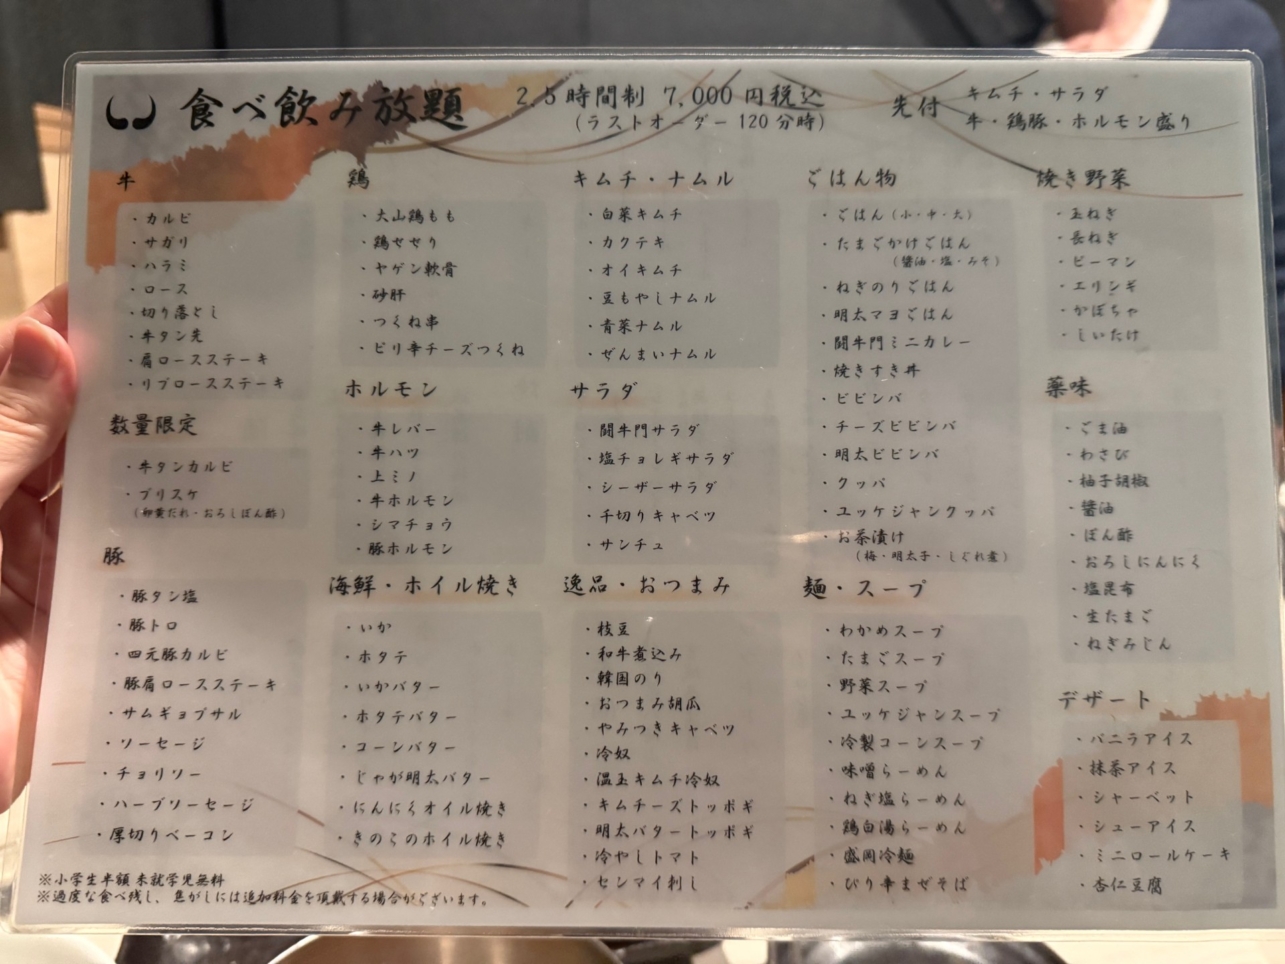 食べ飲み放題
2.5時間制 7,000円税込
(ラストオーダー 120分時)
先付
キムチ・サラダ
牛・鶏豚・ホルモン盛り
牛
・カルビ
・サガリ
・ハラミ
・ロース
・切り落とし
・牛タン先
・肩ロースステーキ
・リブロースステーキ
数量限定
・牛タンカルビ
・ブリスケ
(卵黄だれ・おろしぽん酢)
豚
・豚タン塩
・豚トロ
・四元豚カルビ
・豚肩ロースステーキ
・サムギョプサル
・ソーセージ
・チョリソー
・ハーブソーセージ
・厚切りベーコン
鶏
・大山鶏もも
・鶏せせり
・ヤゲン軟骨
・砂肝
・つくね串
・ピリ辛チーズつくね
ホルモン
・牛レバー
・牛ハツ
・上ミノ
・牛ホルモン
・シマチョウ
・豚ホルモン
海鮮・ホイル焼き
・いか
・ホタテ
・いかバター
・ホタテバター
・コーンバター
・じゃが明太バター
・にんにくオイル焼き
・きのこのホイル焼き
キムチ・ナムル
・白菜キムチ
・カクテキ
・オイキムチ
・豆もやしナムル
・青菜ナムル
・ぜんまいナムル
サラダ
・闘牛門サラダ
・塩チョレギサラダ
・シーザーサラダ
・千切りキャベツ
・サンチュ
逸品・おつまみ
・枝豆
・和牛煮込み
・韓国のり
・おつまみ胡瓜
・やみつきキャベツ
・冷奴
・温玉キムチ冷奴
・キムチーズトッポギ
・明太バタートッポギ
・冷やしトマト
・センマイ刺し
ごはん物
・ごはん(小・中・大)
・たまごかけごはん
(醤油・塩・みそ)
・ねぎのりごはん
・明太マヨごはん
・闘牛門ミニカレー
・焼きすき丼
・ビビンバ
・チーズビビンバ
・明太ビビンバ
・クッパ
・ユッケジャンクッパ
・お茶漬け
(梅・明太子・しぐれ煮)
麺・スープ
・わかめスープ
・たまごスープ
・野菜スープ
・ユッケジャンスープ
・冷製コーンスープ
・味噌らーめん
・ねぎ塩らーめん
・鶏白湯らーめん
・盛岡冷麺
・ぴり辛まぜそば
焼き野菜
・玉ねぎ
・長ねぎ
・ピーマン
・エリンギ
・かぼちゃ
・しいたけ
薬味
・ごま油
・わさび
・柚子胡椒
・醤油
・ぽん酢
・おろしにんにく
・塩昆布
・生たまご
・ねぎみじん
デザート
・バニラアイス
・抹茶アイス
・シャーベット
・シューアイス
・ミニロールケーキ
・杏仁豆腐
※小学生半額 未就学児無料
※過度な食べ残し、焦がしには追加料金を頂戴する場合がございます。